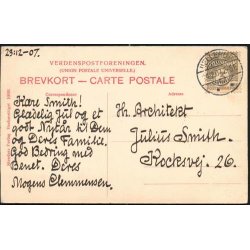 23-12-07.
VERDENSPOSTFORENINGEN.
(UNION POSTALE UNIVERSELLE.)
BREVKORT – CARTE POSTALE
Kære Smith!
Glædelig Jul og et
godt Nytår til Dem
og Deres Familie.
God Bedring med
Benet. Deres
Mogens Clemmensen.
Hr. Architekt
Julius Smith.
Kocksvej. 26.